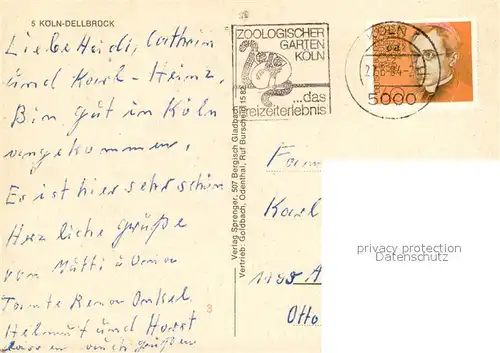 5 KÖLN-DELLBRÜCK
Liebe Heidi, Cathrin
und Karl-Heinz,
Bin gut in Köln
angekommen,
Es ist hier sehr schön
Herzliche grüße
von Mutti u
Tante Onkel
Helmut und Horst
auch grüßen
Verlag Sprenger, 507 Bergisch Gladbach
Vertrieb: Goldbach, Odenthal, Ruf Burscheid 15 82
3
ZOOLOGISCHER
GARTEN
KÖLN
...das
Freizeiterlebnis
KÖLN
5000
Karl
Otto
privacy protection
Datenschutz